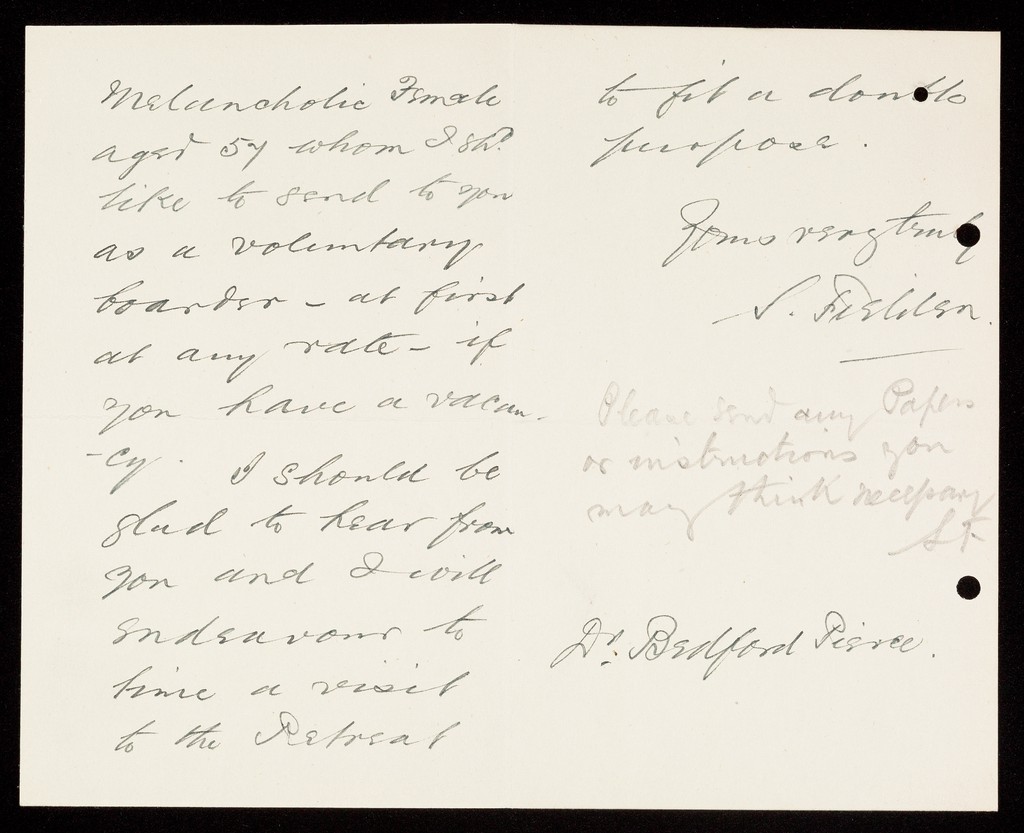 Melancholic Female
aged 57 whom I shd.
like to send to you
as a voluntary
boarder - at first
at any rate - if
you have a vacan-
-cy. I should be
glad to hear from
you and I will
endeavour to
time a visit
to the Retreat
to fit a double
purpose.
Yours very truly
S. Fielden.
Please send any Papers
or instructions you
may think necessary
SF
Dr. Bedford Pierce.